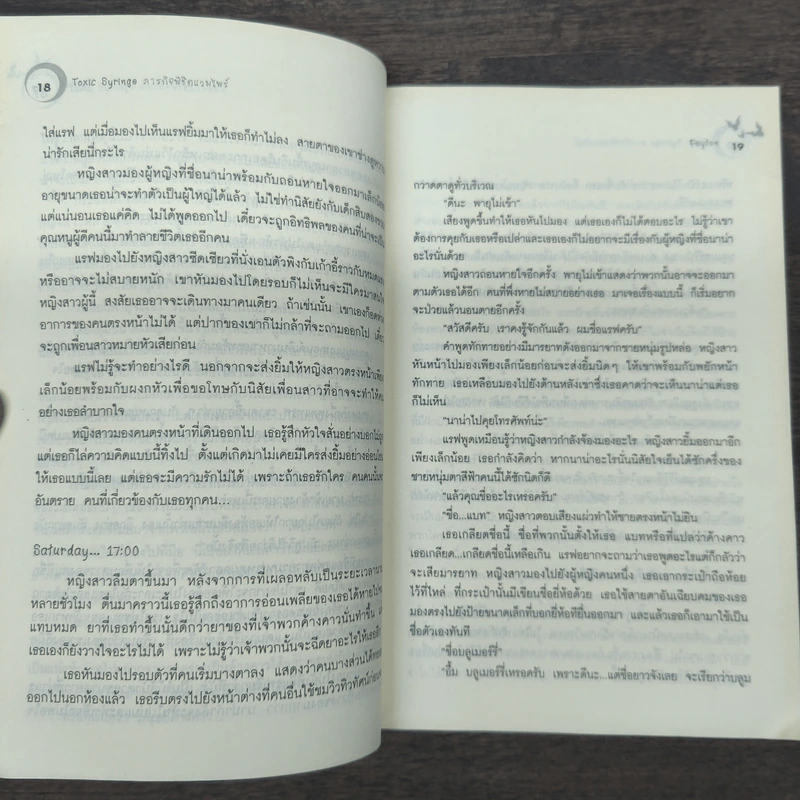 18
Toxic Syringe ภารกิจพิชิตแวมไพร์
ใส่แรฟ แต่เมื่อมองไปเห็นแรฟยิ้มมาให้เธอก็ทำไม่ลง สายตาของเขาช่างดู
น่ารักเสียนี่กระไร
หญิงสาวมองผู้หญิงที่ชื่อนาน่าพร้อมกับถอนหายใจออกมาเล็กน้อย
อายุขนาดเธอน่าจะทำตัวเป็นผู้ใหญ่ได้แล้ว ไม่ใช่ทำนิสัยยังกับเด็กสิบสอง
แต่แน่นอนเธอแค่คิด ไม่ได้พูดออกไป เดี๋ยวจะถูกอิทธิพลของคนที่น่าจะเป็น
คุณหนูผู้ดีคนนี้มาทำลายชีวิตเธออีกคน
แรฟมองไปยังหญิงสาวซีดเซียวที่นั่งเอนตัวพิงกับเก้าอี้ราวกับหมด
หรืออาจจะไม่สบายหนัก เขาหันมองไปโดยรอบก็ไม่เห็นจะมีใครมา
หญิงสาวผู้นี้ สงสัยเธออาจจะเดินทางมาคนเดียว ถ้าเช่นนั้น เขาเองก็อด
อาการของคนตรงหน้าไม่ได้ แต่ปากของเขาก็ไม่กล้าที่จะถามออกไป เดี๋ยว
จะถูกเพื่อนสาวหมายหัวเสียก่อน
แรฟไม่รู้จะทำอย่างไรดี นอกจากจะส่งยิ้มให้หญิงสาวตรงหน้าเพียง
เล็กน้อยพร้อมกับผงกหัวเพื่อขอโทษกับนิสัยเพื่อนสาวที่อาจจะทำให้คน
อย่างเธอลำบากใจ
หญิงสาวมองคนตรงหน้าที่เดินออกไป เธอรู้สึกหัวใจสั่นอย่างบอกไม่ถูก
แต่เธอก็ไล่ความคิดแบบนี้ทิ้งไป ตั้งแต่เกิดมาไม่เคยมีใครส่งยิ้มอย่างอ่อนโยน
ให้เธอแบบนี้เลย แต่เธอจะมีความรักไม่ได้ เพราะถ้าเธอรักใคร คนคนนั้น
อันตราย คนที่เกี่ยวข้องกับเธอทุกคน...
Saturday... 17:00
หญิงสาวลืมตาขึ้นมา หลังจากการที่เผลอหลับเป็นระยะเวลานาน
หลายชั่วโมง ตื่นมาคราวนี้เธอรู้สึกถึงอาการอ่อนเพลียของเธอได้หายไป
แทบหมด ยาที่เธอทำขึ้นนั้นดีกว่ายาของที่เจ้าพวกค้างคาวนั่นทำขึ้น
เธอเองก็ยังวางใจอะไรไม่ได้ เพราะไม่รู้ว่าเจ้าพวกนั้นจะฉีดยาอะไรให้เธออีก
เธอหันไปมองรอบตัวที่คนเริ่มบางตาลง แสดงว่าคนบางส่วนได้
ออกไปนอกห้องแล้ว เธอรีบตรงไปยังหน้าต่างที่คนอื่นใช้ชมวิวทิวทัศน์ก่อน
Taylor 19
กวาดตาดูทั่วบริเวณ
“ดีนะ พายุไม่เข้า”
เสียงพูดขึ้นทำให้เธอหันไปมอง แต่เธอเองก็ไม่ได้ตอบอะไร ไม่รู้ว่าเขา
ต้องการคุยกับเธอหรือเปล่าและเธอเองก็ไม่อยากจะมีเรื่องกับผู้หญิงที่ชื่อนาน่า
อะไรนั่นด้วย
หญิงสาวถอนหายใจอีกครั้ง พายุไม่เข้าแสดงว่าพวกนั้นอาจจะออกมา
ตามตัวเธอได้อีก คนที่พึ่งหายไม่สบายอย่างเธอ มาเจอเรื่องแบบนี้ ก็เริ่มอยาก
จะป่วยแล้วนอนตายอีกครั้ง
“สวัสดีครับ เราคงรู้จักกันแล้ว ผมชื่อแรฟครับ”
คำพูดทักทายอย่างมีมารยาทดังออกมาจากชายหนุ่มรูปหล่อ หญิงสาว
หันหน้าไปมองเพียงเล็กน้อยก่อนจะส่งยิ้มนิดๆ ให้เขาพร้อมกับพยักหน้า
ทักทาย เธอเหลือบมองไปยังด้านหลังเขาซึ่งเธอคาดว่าจะเห็นนาน่าแต่เธอ
ก็ไม่เห็น
“นาน่าไปคุยโทรศัพท์น่ะ”
แรฟพูดเหมือนรู้ว่าหญิงสาวกำลังจ้องมองอะไร หญิงสาวยิ้มออกมาอีก
เพียงเล็กน้อย เธอกำลังคิดว่า หากนาน่าอะไรนั่นนิสัยใจเย็นได้ซักครึ่งของ
ชายหนุ่มตาสีฟ้าคนนี้ได้ซักนิดก็ดี
“แล้วคุณชื่ออะไรเหรอครับ”
“ชื่อ...แบท” หญิงสาวตอบเสียงแผ่วทำให้ชายตรงหน้าไม่ยิน
เธอเกลียดชื่อนี้ ชื่อที่พวกนั้นตั้งให้เธอ แบทหรือที่แปลว่าค้างคาว
เธอเกลียด...เกลียดชื่อนี้เหลือเกิน แรฟอยากจะถามว่าเธอพูดอะไรแต่ก็กลัวว่า
จะเสียมารยาท หญิงสาวมองไปยังผู้หญิงคนหนึ่ง เธอเอากระเป๋าถือห้อย
ไว้ที่ไหล่ ที่กระเป๋านั้นมีเขียนชื่อยี่ห้อด้วย เธอใช้สายตาอันเฉียบคมของเธอ
มองตรงไปยังป้ายขนาดเล็กที่บอกยี่ห้อที่ยื่นออกมา และแล้วเธอก็เอามาใช้เป็น
ชื่อตัวเองทันที
“ชื่อบลูเมอร์รี่”
“อื้ม บลูเมอร์รี่เหรอครับ เพราะดีนะ...แต่ชื่อยาวจังเลย จะเรียกว่าบลูม